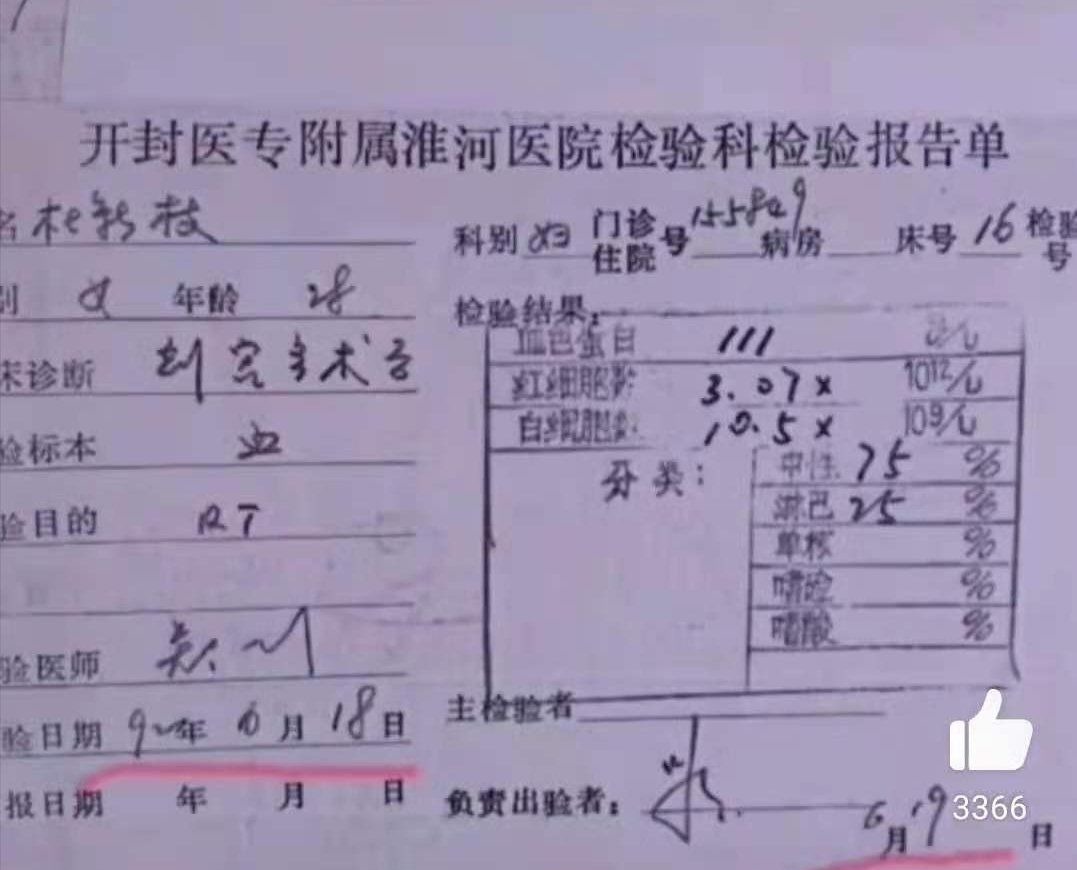 开封医专附属淮河医院检验科检验报告单
名 杜新枝
科别 妇 门诊住院号 155849 病房 床号 16 检验号
别 女 年龄 28
检验结果:
血色蛋白 111 g/L
床诊断 剖宫手术
红细胞数 3.07× 1012/L
白细胞数 10.5× 109/L
验标本 血
分类: 中性 75 %
淋巴 25 %
验目的 RT
单核 %
嗜碱 %
嗜酸 %
验医师
主检验者
验日期 92年 6月 18日
报日期 年 月 日
负责出验者: 6月19日
3366